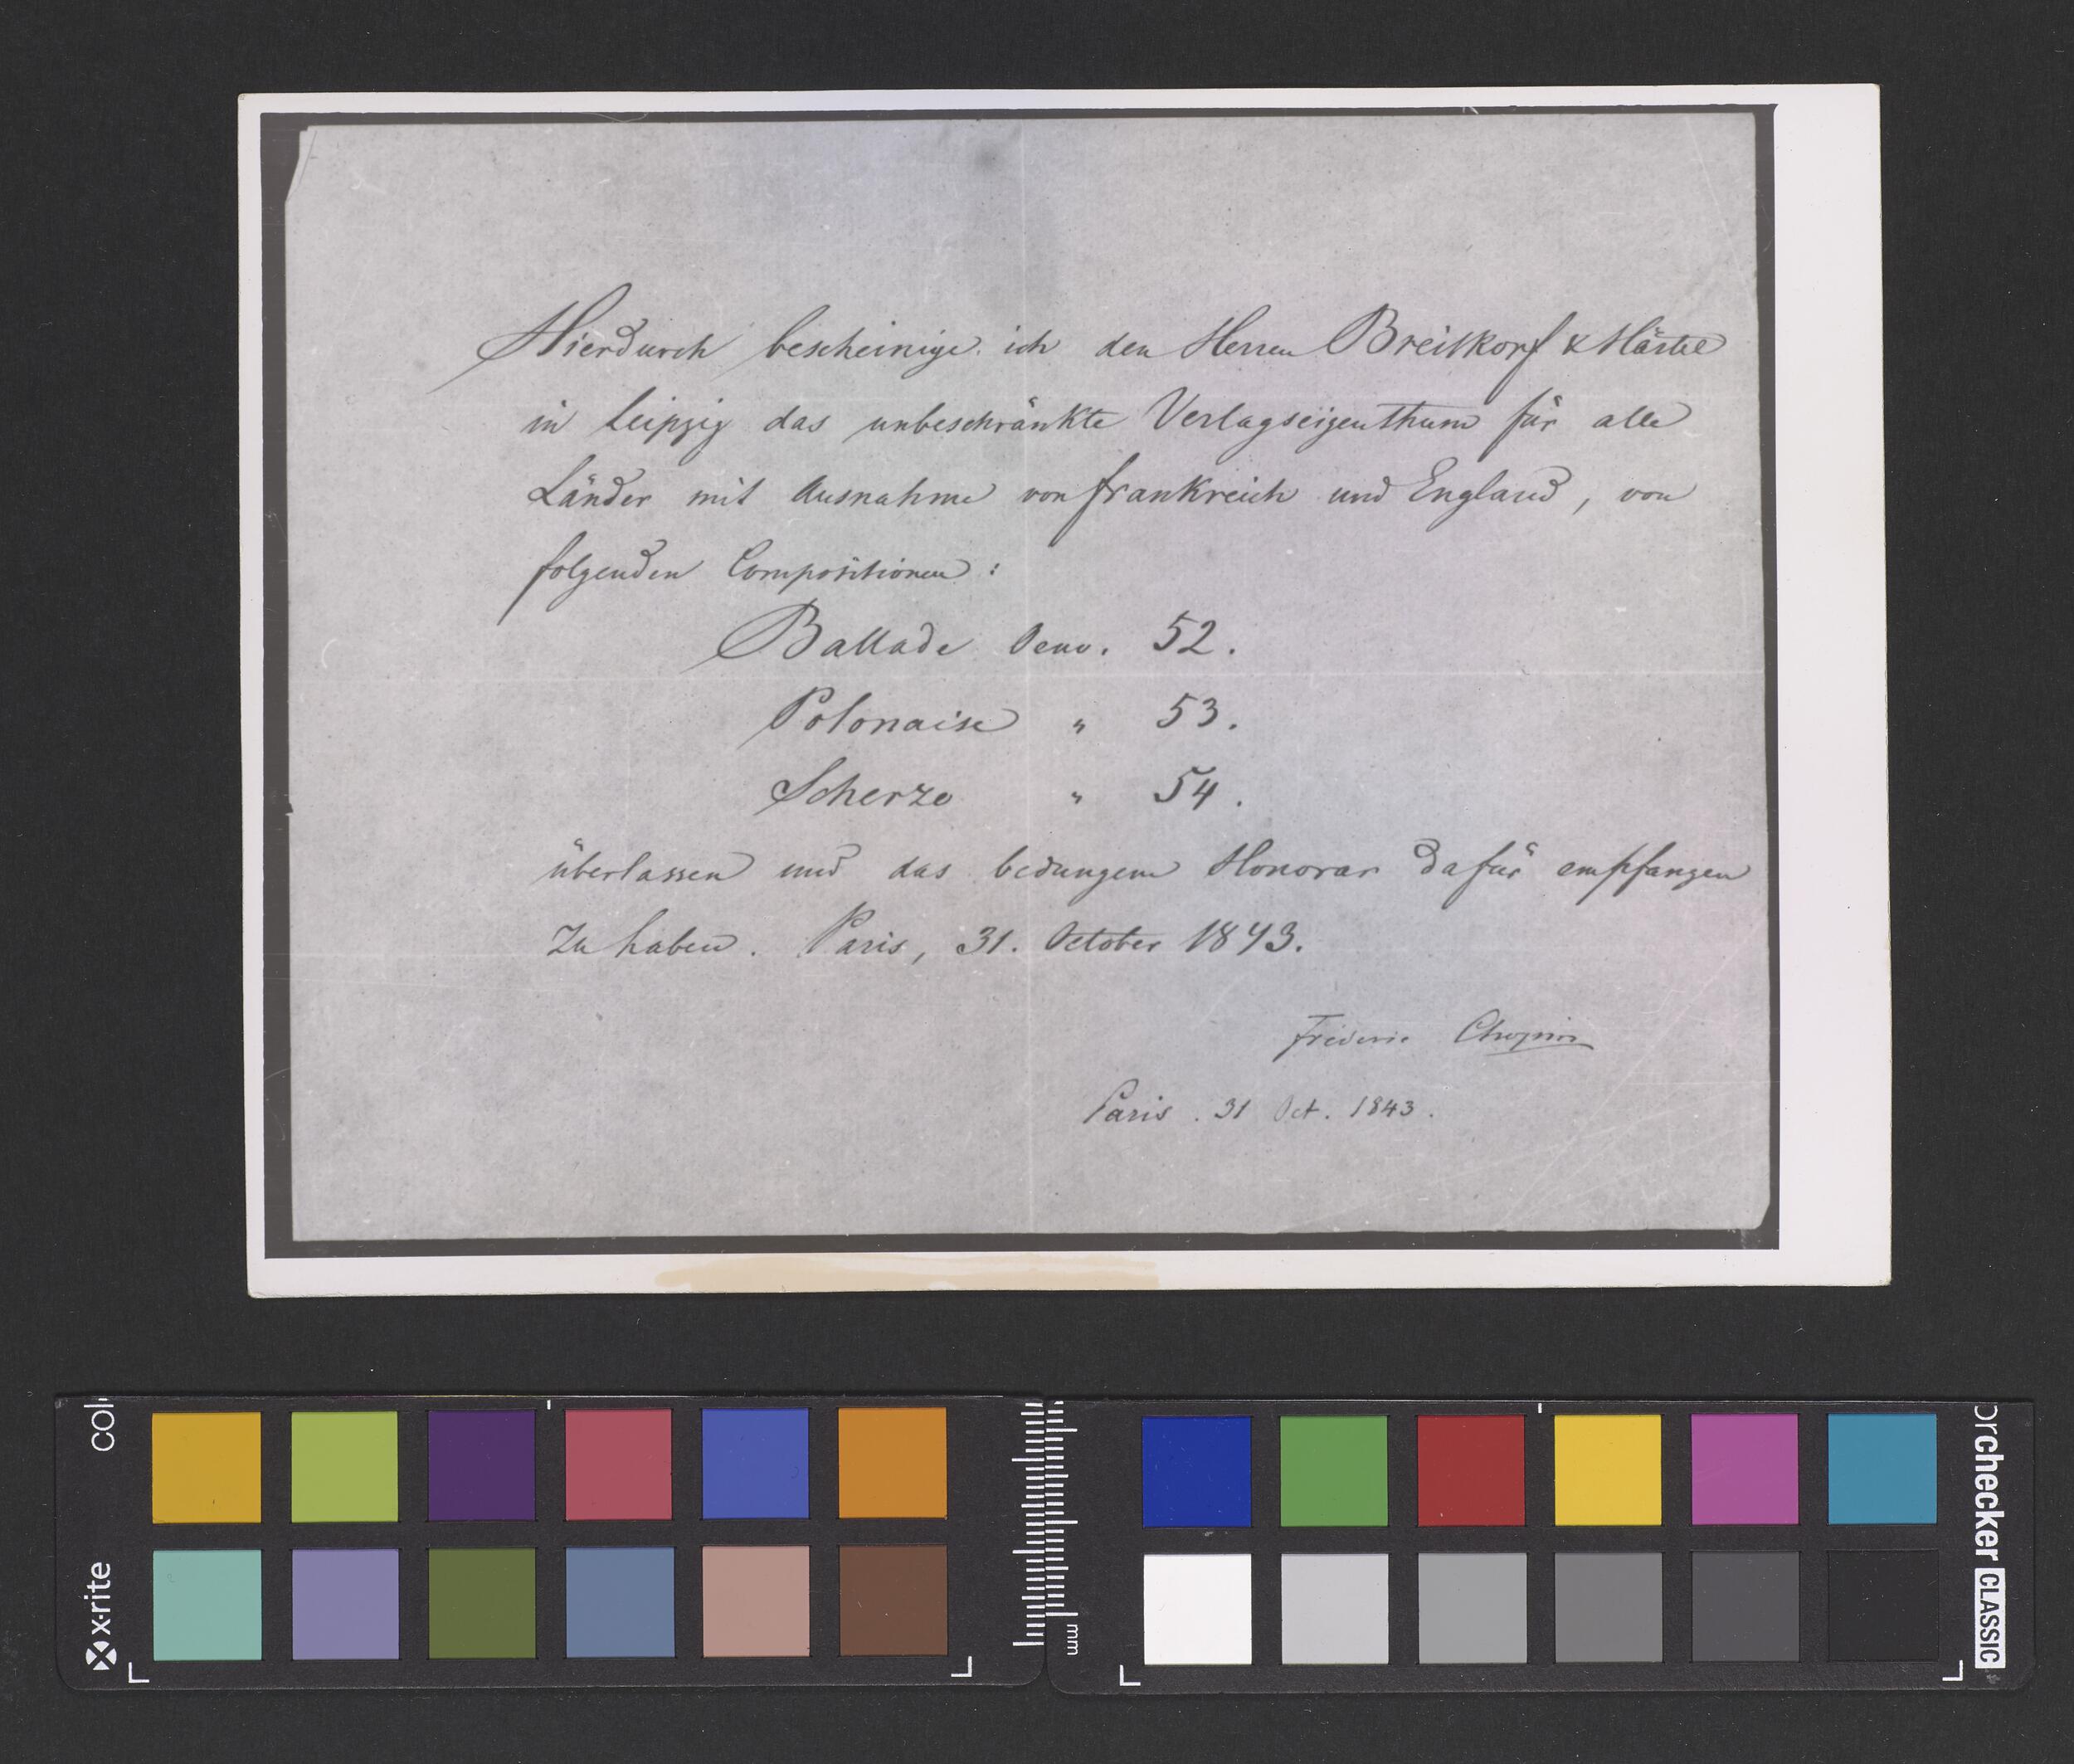 Hierdurch bescheinige ich den Herren Breitkopf & Härtel
in Leipzig das unbeschränkte Verlagseigenthum für alle
Länder mit Ausnahme von Frankreich und England, von
folgenden Compositionen:
Ballade Oeuv. 52.
Polonaise " 53.
Scherzo " 54.
überlassen und das bedungene Honorar dafür empfangen
zu haben. Paris, 31. October 1843.
Fréderic Chopin
Paris. 31 Oct. 1843.
x-rite
col
mm
orchecker CLASSIC